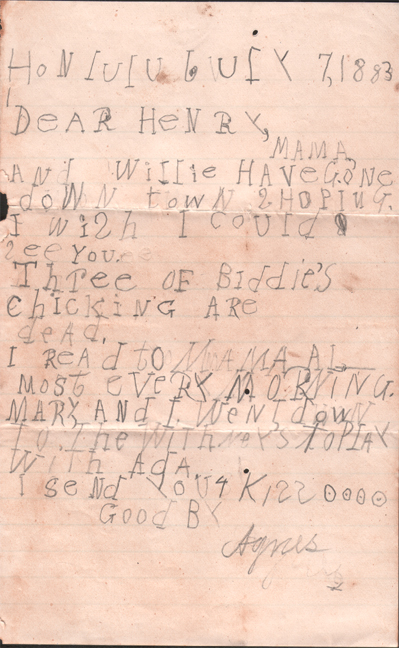 HoNlulu JUlY 7,1883
DeAR HeNRY,
MAMA
ANd Willie HAVe GoNe
doWN towN SHOPING.
I wish I Could
See You.
Three OF BiddIe's
CHickiNG ARe
dead.
I REAd to MAMA Al-
most eVeRY MORNiNG.
MARY ANd I WeNt down
To The WithNeYs To PlAY
With AdA.
I seNd YOU 4 KISS OOOO
Good BY
Agnes